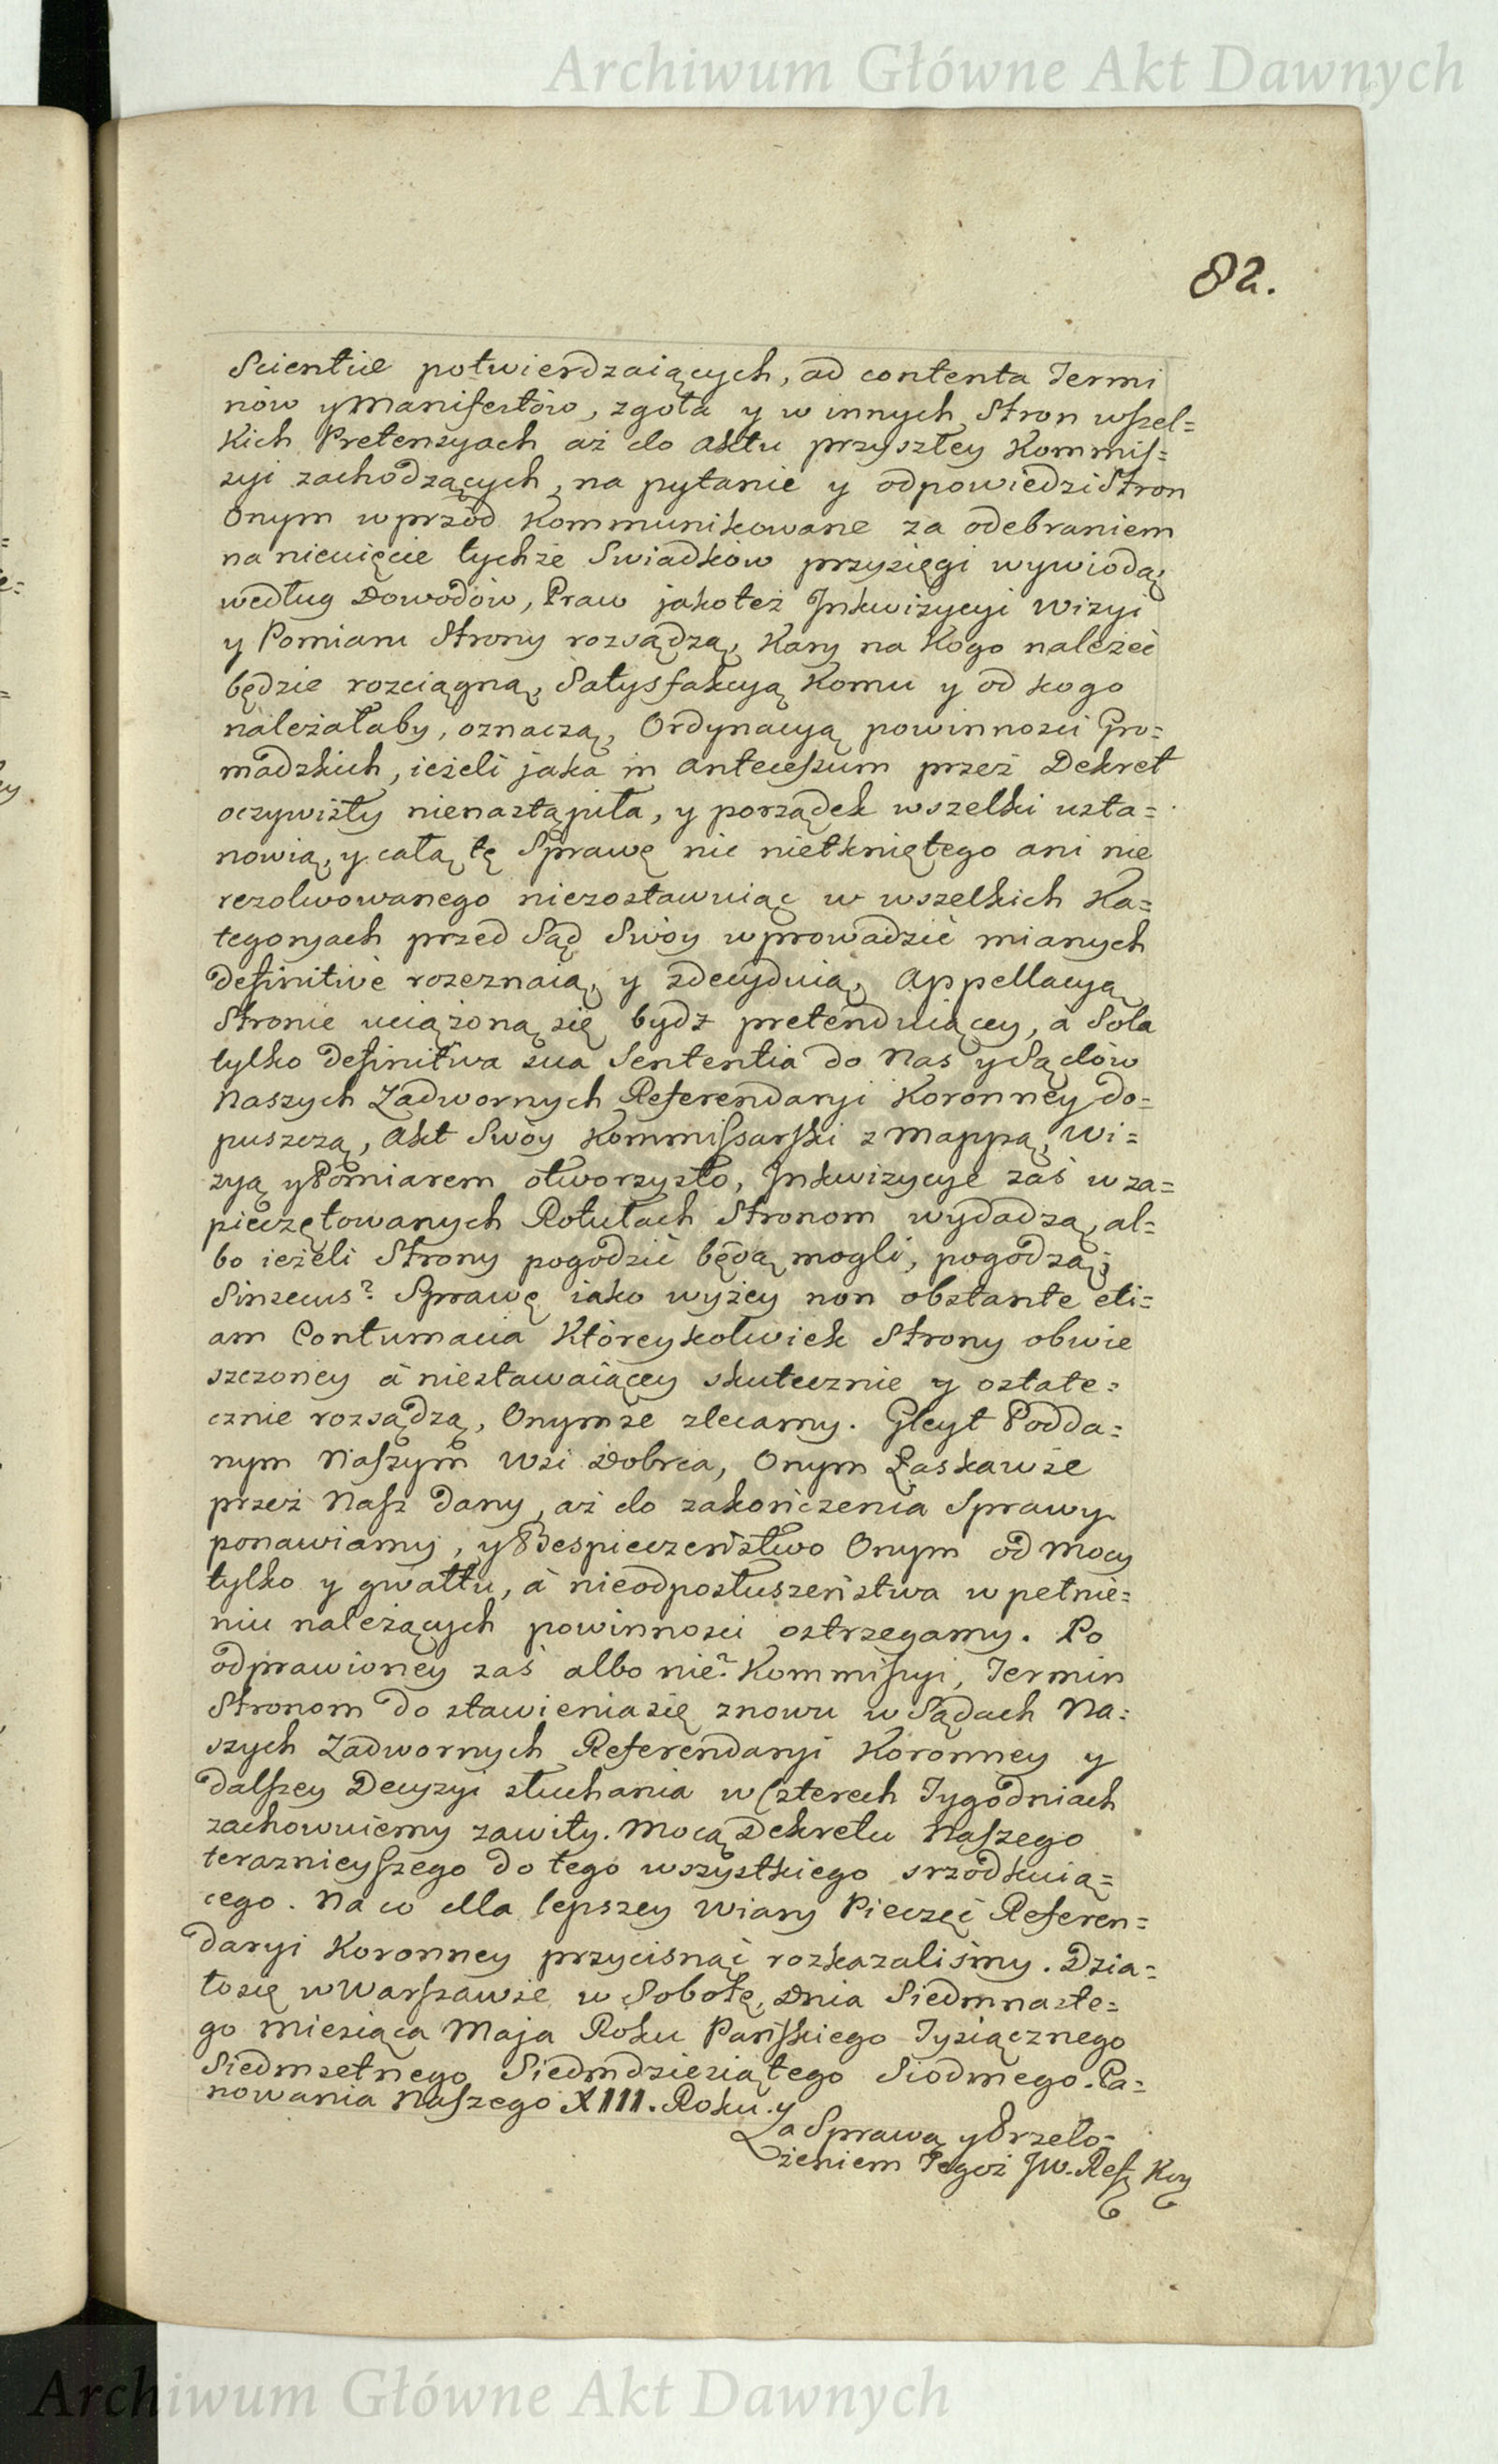 Archiwum Główne Akt Dawnych
82.
Scientiæ potwierdzaiących, ad contenta Termi
nów y Manifestów, zgoła y w innych Stron wszel=
kich Pretensyach aż do Aktu przyszłey Kommis=
syi zachodzących, na pytanie y odpowiedzi Stron
Onym wprzód kommunikowane za odebraniem
na niewięcie tychże Swiadków przysięgi wywiodą,
według Dowodów, Praw jakoteż Inkwizycyi Wizyi
y Pomiaru Strony rozsądzą, Kary na Kogo należeć
będzie rozciągną, Satysfakcyą Komu y od kogo
należałaby, oznaczą, Ordynacyą powinności Gro=
madzkich, ieżeli jaka in antecessum przez Dekret
oczywisty nienastąpiła, y porządek wszelki usta=
nowią, y całą tę Sprawę nic nietkniętego ani nie
rezolwowanego niezostawuiąc w wszelkich Ka=
tegoryach przed Sąd Swóy wprowadzić mianych
definitivè rozeznaią, y zdecyduią, Appellacyą
Stronie uciążoną się bydź pretenduiącey, à Sola
tylko definitiva sua Sententia do Nas y Sądów
Naszych Zadwornych Referendaryi Koronney do=
puszczą, Akt Swóy Kommissarski z Mappą, Wi=
zyą y Pomiarem otworzysto, Inkwizycye zaś w za=
pieczętowanych Rotułach Stronom wydadzą, al=
bo ieżeli Strony pogodzić będą mogli, pogodzą;
Sinsecus? Sprawę iako wyżey non obstante eti=
am Contumacia Któreykolwiek Strony obwie
szczoney à niestawaiącey skutecznie y ostate=
cznie rozsądzą, Onymże zlecamy. Gleyt Podda=
nym Naszym Wsi Dobrca, Onym Łaskawie
przez Nasz dany, aż do zakończenia Sprawy
ponawiamy, y Bespieczeństwo Onym od mocy
tylko y gwałtu, à nieodposłuszeństwa w pełnie=
niu należących powinności ostrzegamy. Po
odprawioney zaś albo nie? Kommissyi, Termin
Stronom do stawienia się znowu w Sądach Na=
szych Zadwornych Referendaryi Koronney y
dalszey Decyzyi słuchania w Czterech Tygodniach
zachowuiemy zawity. Mocą Dekretu Naszego
teraznieyszego do tego wszystkiego srzodkuią=
cego. Na co dla lepszey Wiary Pieczęć Referen=
daryi Koronney przycisnąć rozkazaliśmy. Dzia=
ło się w Warszawie w Sobotę, Dnia Siedmnaste=
go Miesiąca Maja Roku Pańskiego Tysiącznego
Siedmsetnego Siedmdziesiątego Siódmego. Pa=
nowania Naszego XIII. Roku.
Za Sprawą y Przeło=
żeniem Tegoż JW. Refq Kor
Archiwum Główne Akt Dawnych